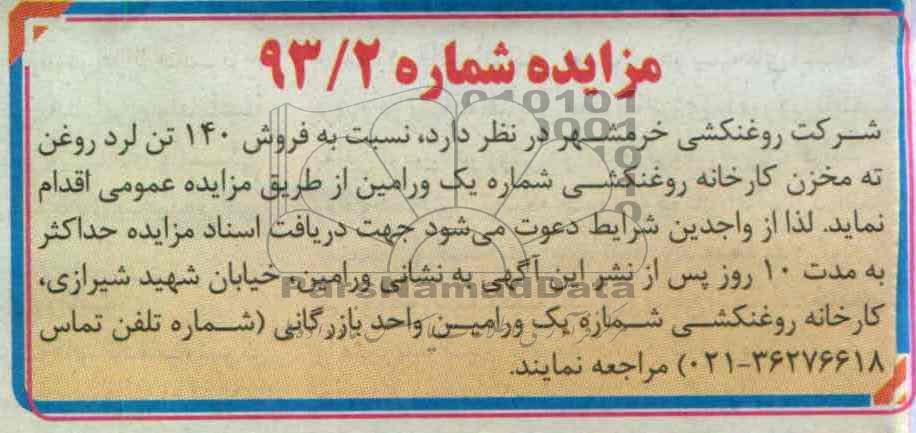 مزایده شماره ۹۳/۲
شرکت روغنکشی خرمشهر در نظر دارد، نسبت به فروش ۱۴۰ تن لرد روغن
ته مخزن کارخانه روغنکشی شماره یک ورامین از طریق مزایده عمومی اقدام
نماید. لذا از واجدین شرایط دعوت می‌شود جهت دریافت اسناد مزایده حداکثر
به مدت ۱۰ روز پس از نشر این آگهی به نشانی ورامین، خیابان شهید شیرازی،
کارخانه روغنکشی شماره یک ورامین واحد بازرگانی (شماره تلفن تماس
۰۲۱-۳۶۲۷۶۶۱۸) مراجعه نمایند.
ParsNamadData